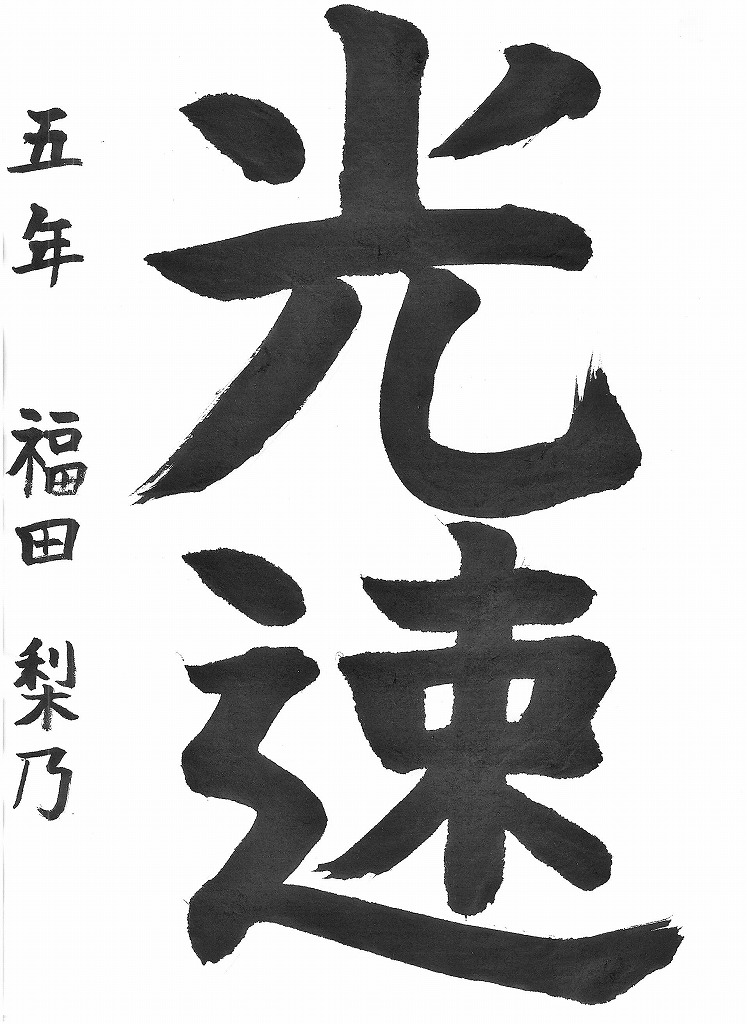 光速
五年 福田 梨乃